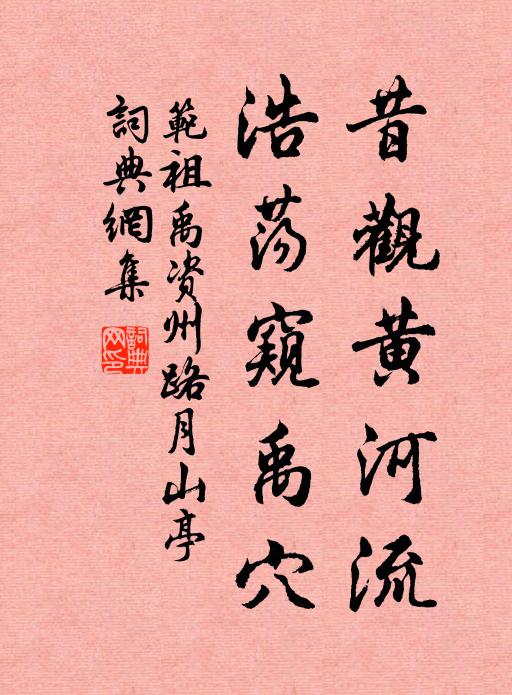 昔觀黄河流
浩荡窺禹穴
範祖禹資州路月山亭
詞典網集
詞典
网印